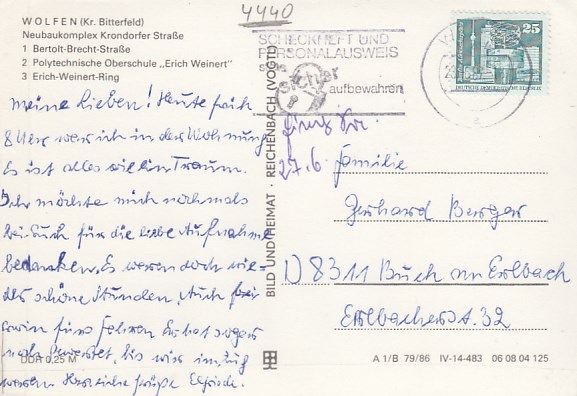 4440
WOLFEN (Kr. Bitterfeld)
Neubaukomplex Krondorfer Straße
1 Bertolt-Brecht-Straße
2 Polytechnische Oberschule „Erich Weinert"
3 Erich-Weinert-Ring
SCHECKHEFT UND
PERSONALAUSWEIS
stets
sicher
aufbewahren
25
DEUTSCHE DEMOKRATISCHE REPUBLIK
meine Lieben! Heute früh
8 Uhr war ich in der Wohnung
Es ist alles wie ein Traum.
Ich möchte mich nochmals
bei Euch für die liebe Aufnahme
bedanken. Es waren doch wie-
der schöne Stunden. Auch
Erwin fürs Fahren. Er hat sogar
noch gewartet, bis wir im Zug
waren Herzliche Grüße Elfriede.
27.6.
Familie
Gerhard Berger
D 8311 Buch am Erlbach
Erlbacherst. 32
BILD UND HEIMAT · REICHENBACH (VOGTL)
DDR 0,25 M
A 1/B 79/86 IV-14-483 06 08 04 125